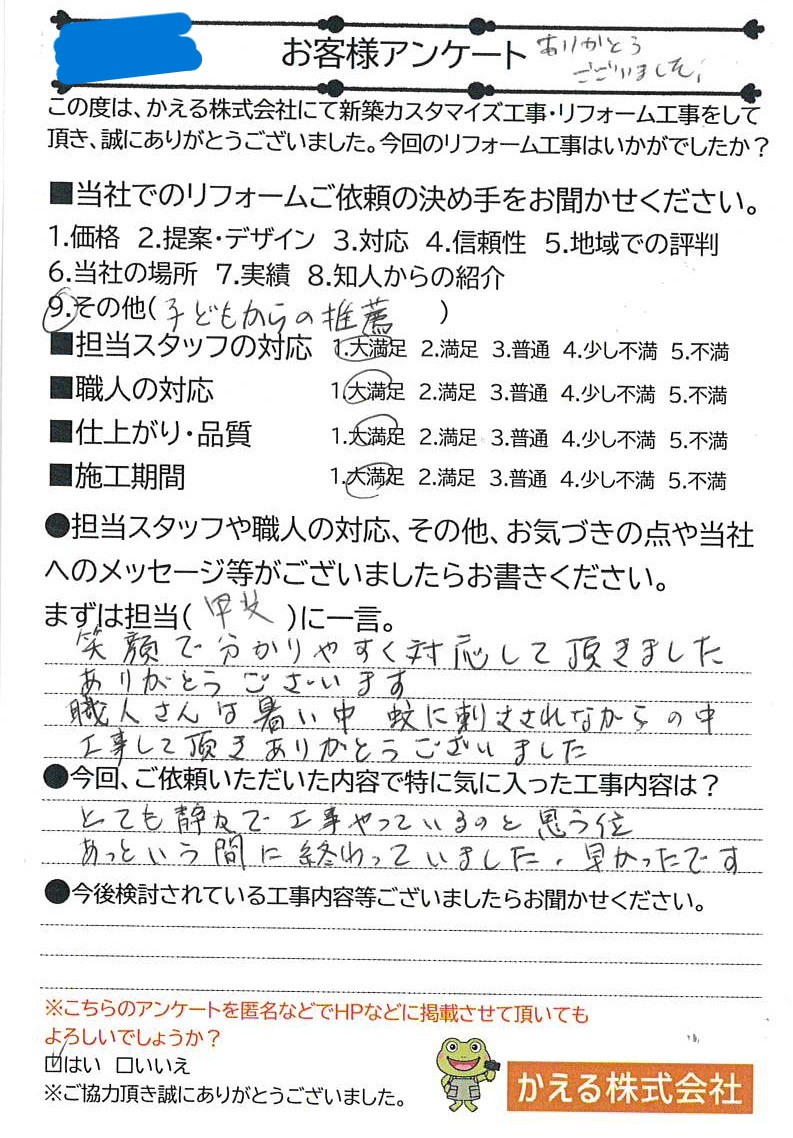 お客様アンケート
ありがとう
ございました。
この度は、かえる株式会社にて新築カスタマイズ工事・リフォーム工事をして
頂き、誠にありがとうございました。今回のリフォーム工事はいかがでしたか？
■当社でのリフォームご依頼の決め手をお聞かせください。
1.価格 2.提案・デザイン 3.対応 4.信頼性 5.地域での評判
6.当社の場所 7.実績 8.知人からの紹介
9.その他(子どもからの推薦)
■担当スタッフの対応 1.大満足 2.満足 3.普通 4.少し不満 5.不満
■職人の対応 1.大満足 2.満足 3.普通 4.少し不満 5.不満
■仕上がり・品質 1.大満足 2.満足 3.普通 4.少し不満 5.不満
■施工期間 1.大満足 2.満足 3.普通 4.少し不満 5.不満
●担当スタッフや職人の対応、その他、お気づきの点や当社
へのメッセージ等がございましたらお書きください。
まずは担当(甲斐)に一言。
笑顔で分かりやすく対応して頂きました
ありがとうございます
職人さんは暑い中 蚊に刺さされながらの中
工事して頂きありがとうございました
●今回、ご依頼いただいた内容で特に気に入った工事内容は？
とても静々で工事やっているのと思う位
あっという間に終わっていました。早かったです
●今後検討されている工事内容等ございましたらお聞かせください。
※こちらのアンケートを匿名などでHPなどに掲載させて頂いても
よろしいでしょうか？
☑はい □いいえ
※ご協力頂き誠にありがとうございました。
かえる株式会社